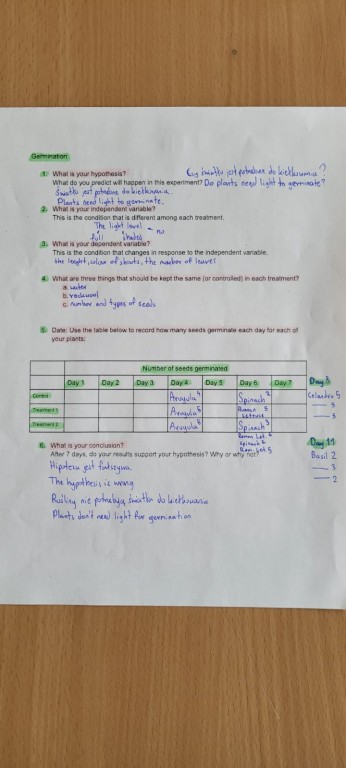 Germination
1. What is your hypothesis? Czy światło jest potrzebne do kiełkowania?
What do you predict will happen in this experiment? Do plants need light to germinate?
Światło jest potrzebne do kiełkowania.
Plants need light to germinate.
2. What is your independent variable?
This is the condition that is different among each treatment.
The light level - no
full shaded
3. What is your dependent variable?
This is the condition that changes in response to the independent variable.
the lenght, colour of shouts, the number of leaves
4. What are three things that should be kept the same (or controlled) in each treatment?
a. water
b.
c. number and types of seeds
5. Date: Use the table below to record how many seeds germinate each day for each of
your plants:
Number of seeds germinated
Day 1 Day 2 Day 3 Day 4 Day 5 Day 6 Day 7 Day 8
Control Arugula 4 Spinach 2 5
Treatment 1 Arugula 5 Roman Lettuce 5 — 5
Treatment 2 Arugula 5 Spinach 3 — 5
Roman Let. 6
Spinach 2
Rom. Let. 5
Day 11
Basil 2
— 3
— 2
6. What is your conclusion?
After 7 days, do your results support your hypothesis? Why or why not?
Hipoteza jest fałszywa.
The hypothesis is wrong
Rośliny nie potrzebują światła do kiełkowania
Plants don't need light for germination